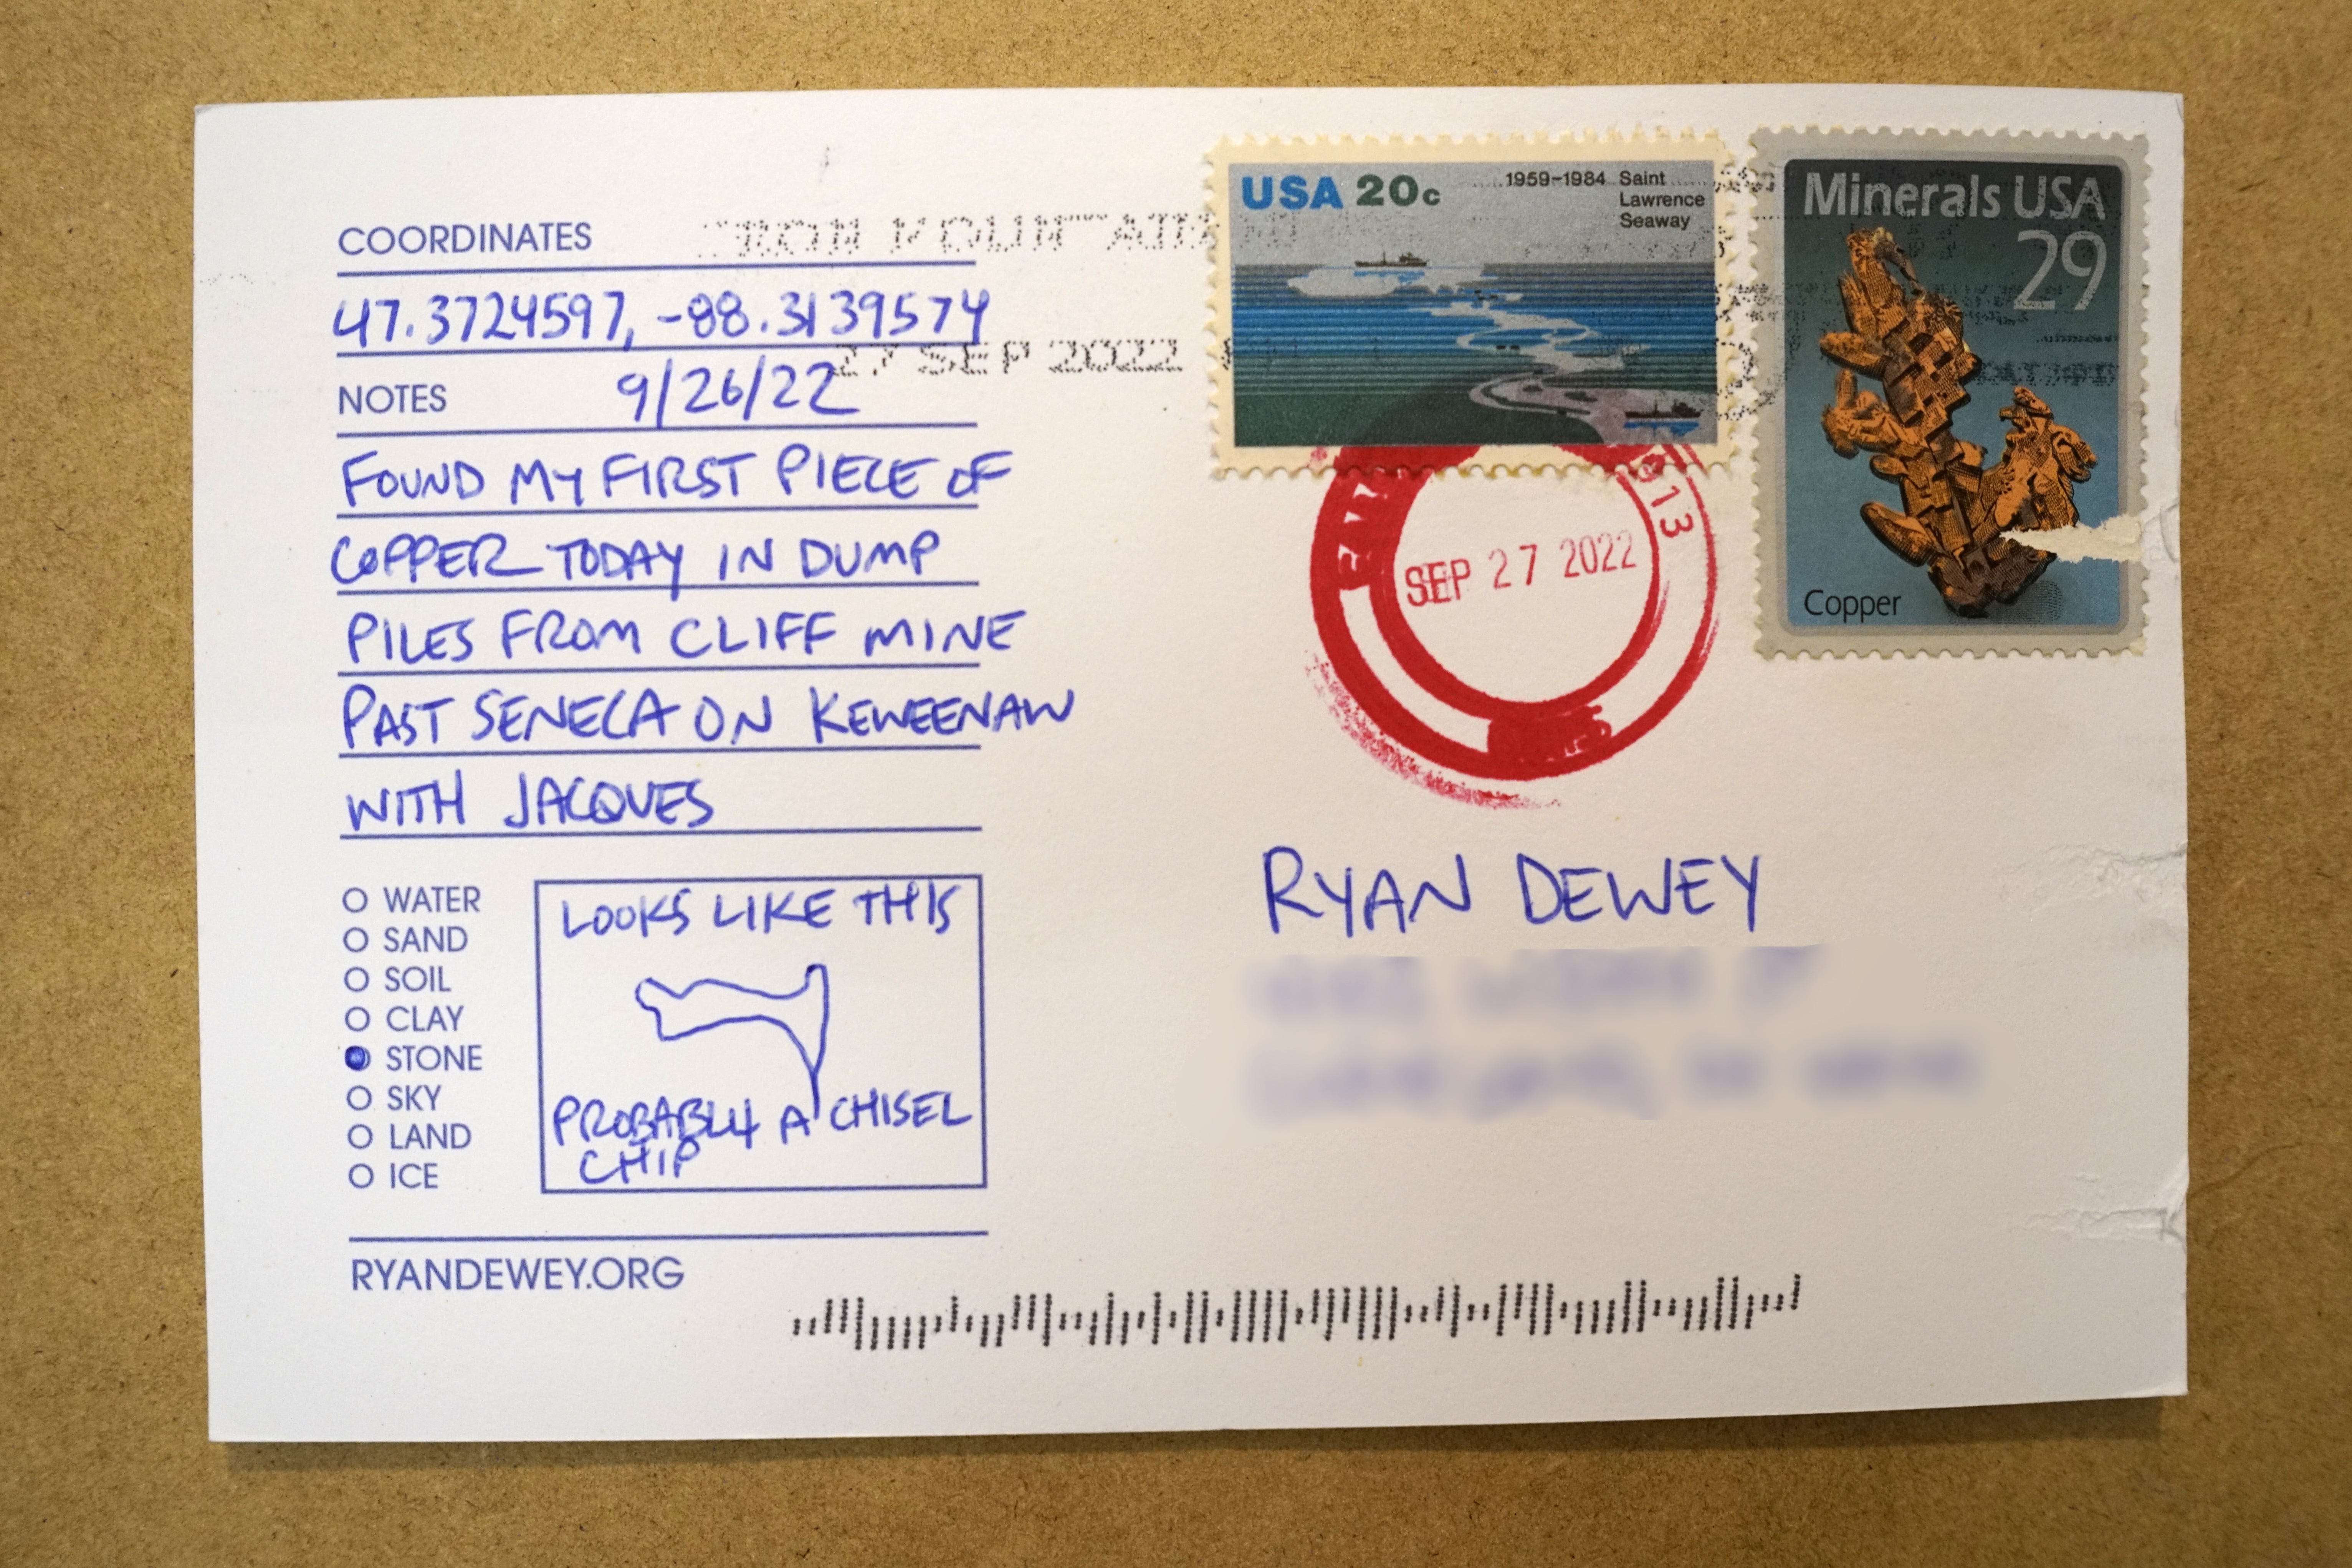 COORDINATES
47.3724597, -88.3139574
NOTES 9/26/22
FOUND MY FIRST PIECE OF
COPPER TODAY IN DUMP
PILES FROM CLIFF MINE
PAST SENECA ON KEWEENAW
WITH JACQUES
WATER
SAND
SOIL
CLAY
STONE
SKY
LAND
ICE
LOOKS LIKE THIS
PROBABLY A CHISEL
CHIP
RYANDEWEY.ORG
27 SEP 2022
USA 20c
1959-1984 Saint
Lawrence
Seaway
Minerals USA
29
Copper
SEP 27 2022
RYAN DEWEY